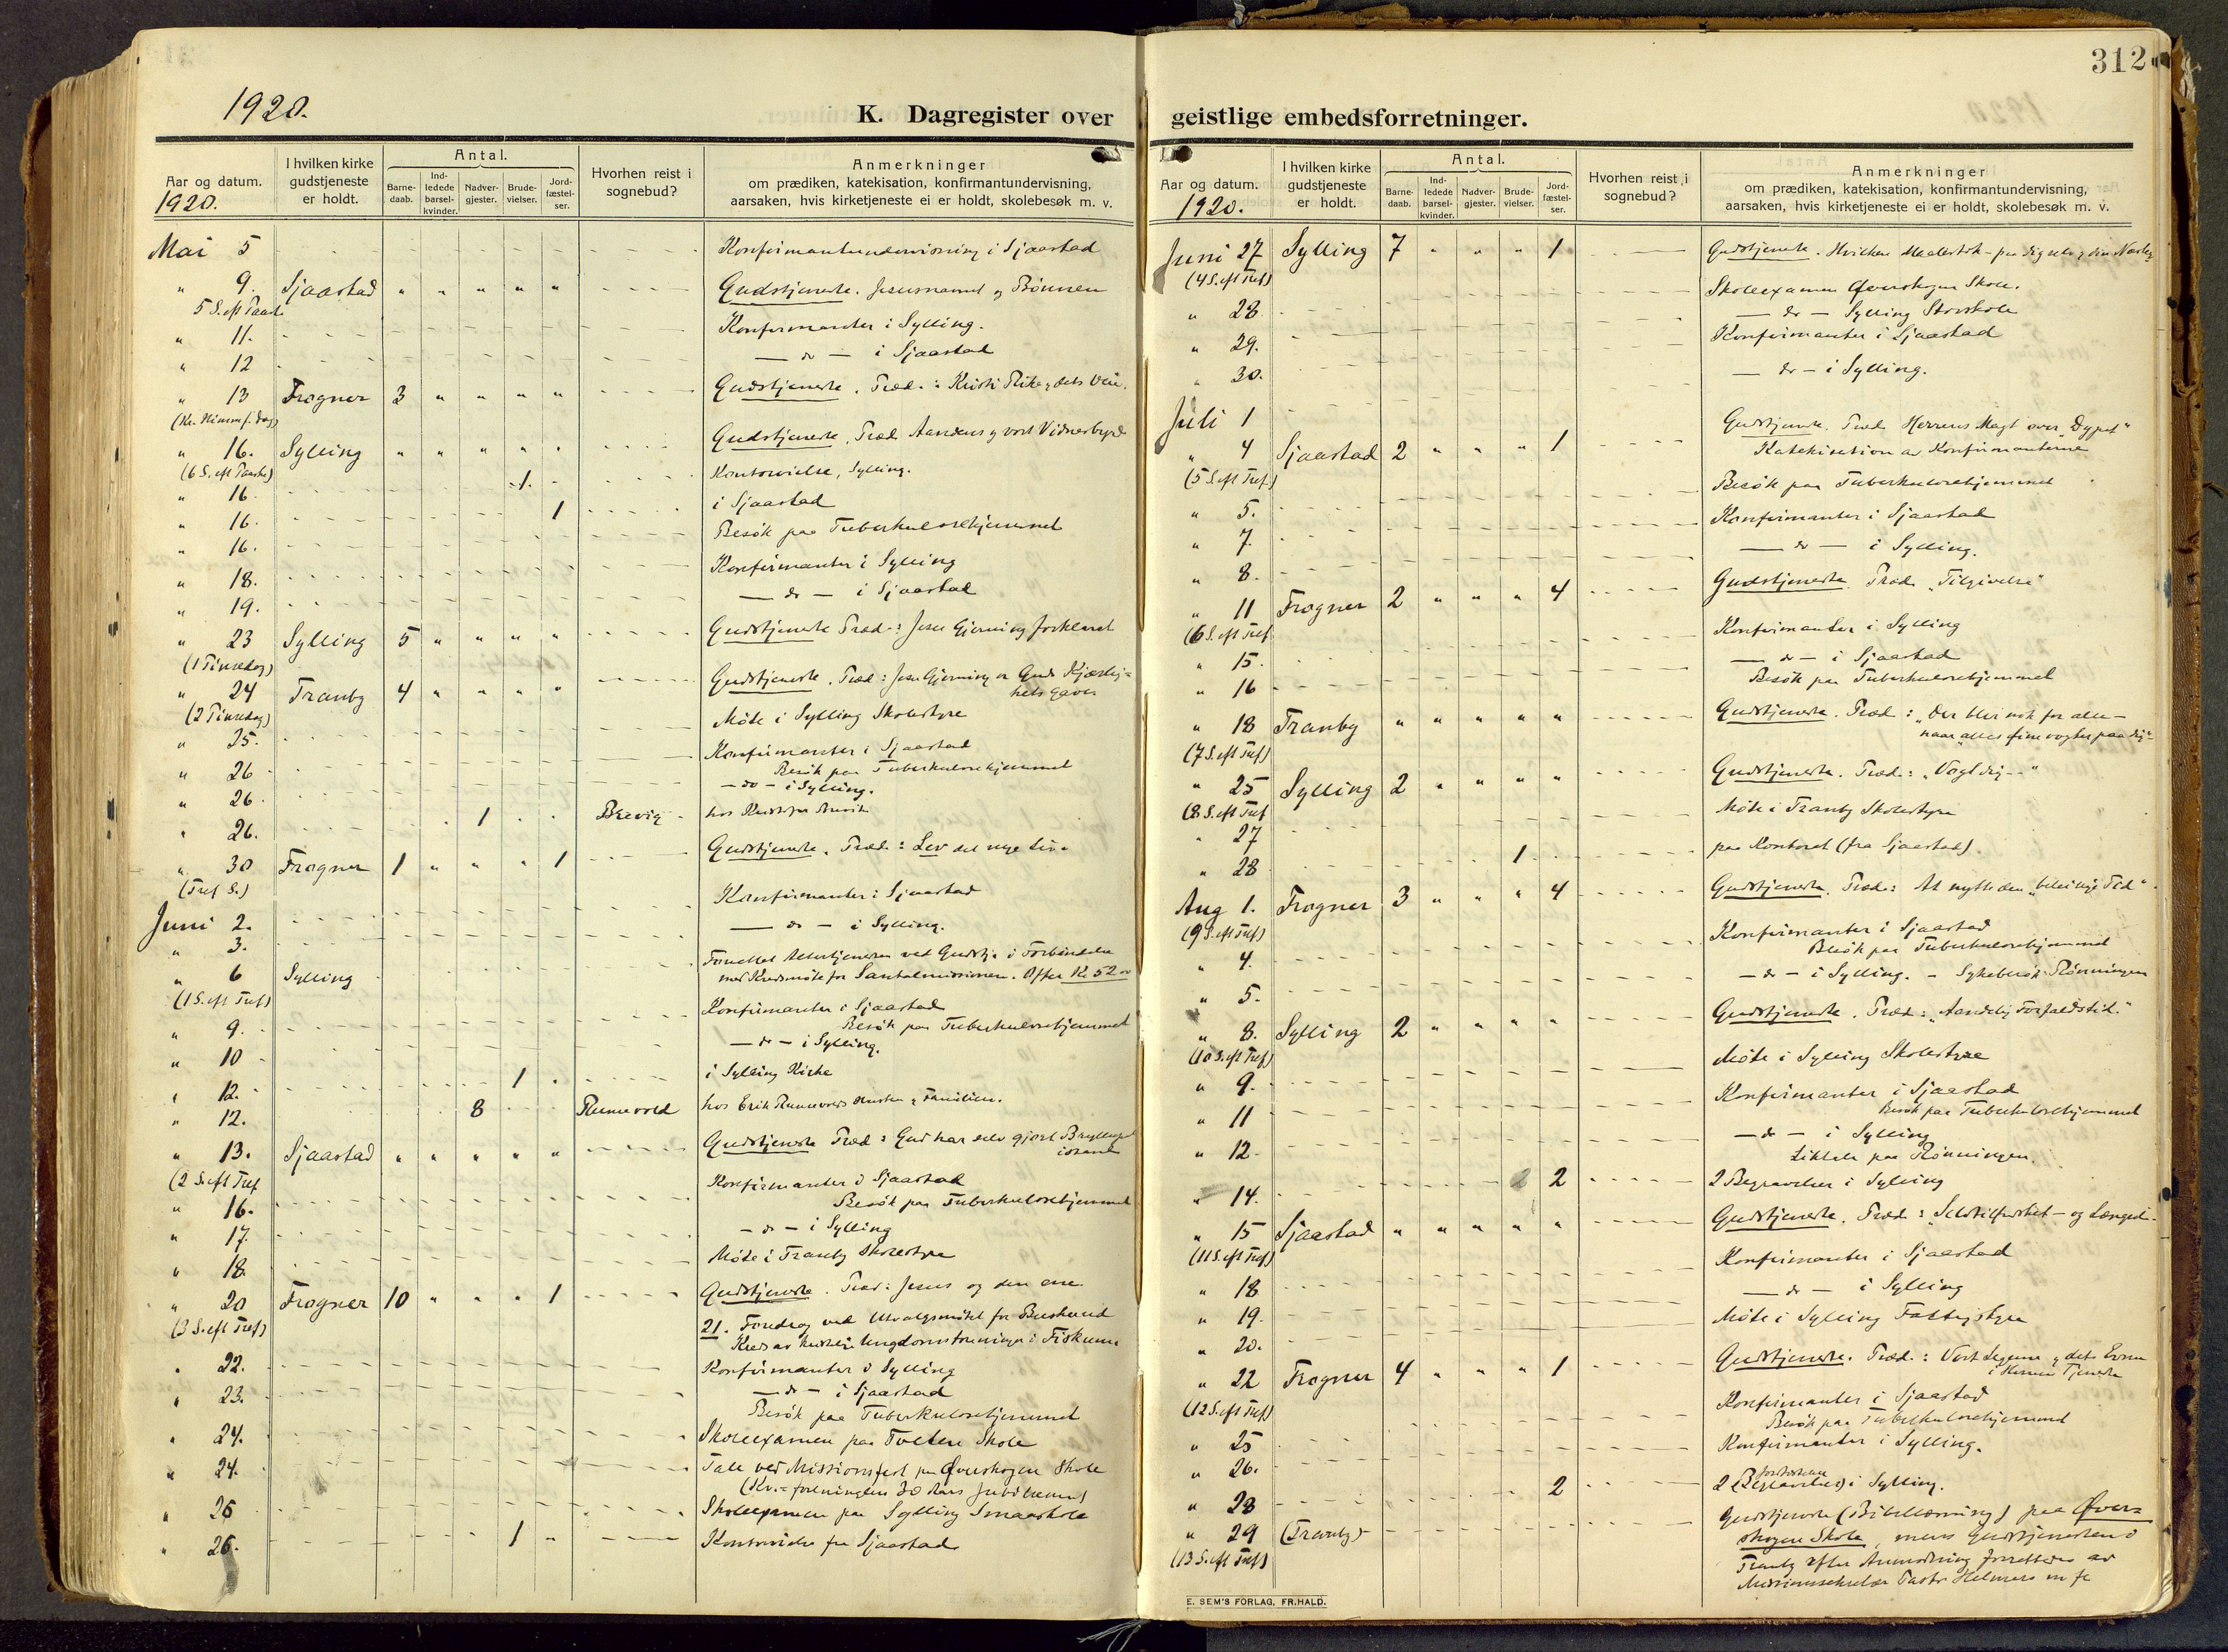 312
1920.
K. Dagregister over geistlige embedsforretninger.
Aar og datum.
1920.
I hvilken kirke gudstjeneste er holdt.
Antal.
Barnedaab.
Indledede barselkvinder.
Nadvergjester.
Brudevielser.
Jordfæstelser.
Hvorhen reist i sognebud?
Anmerkninger
om prædiken, katekisation, konfirmantundervisning,
aarsaken, hvis kirketjeneste ei er holdt, skolebesøk m. v.
Mai 5 Konfirmantundervisning i Sjaastad
" 9. Sjaastad " " " " " Gudstjeneste. Jesunavnet og Bønnen
5 S. eft Paaske
" 11. Konfirmanter i Sylling.
" 12 — do — i Sjaastad
" 13 Frogner 3 " " " " Gudstjeneste. Præd.: Kristi Rike og dets Veie.
(Kr. Himmelf. dag)
" 16. Sylling " " " " " Gudstjeneste. Præd. Aandens og vort Vidnesbyrd
(6 S. eft Paaske)
" 16. 1. Kontorvielse, Sylling.
" 16. 1 i Sjaastad
" 16. Besøk paa Tuberkulosehjemmet
" 18. Konfirmanter i Sylling
" 19. — do — i Sjaastad
" 23 Sylling 5 " " " " Gudstjeneste Præd: Jesu Gjerning forklaret
(1 Pinsedag)
" 24 Tranby 4 " " " " Gudstjeneste. Præd: Jesu Gjerning er Guds Kjærlighets Gaver
(2 Pinsedag)
" 25. Møte i Sylling Skolestyre
" 26 Konfirmanter i Sjaastad
Besøk paa Tuberkulosehjemmet
" 26. — do — i Sylling.
" 26. 1 Brevig hos
" 30 Frogner 1 " " " 1 Gudstjeneste. Præd.: Lev det nye Liv.
(Tref S.)
Juni 2. Konfirmanter i Sjaastad
" 3. — do — i Sylling.
" 6 Sylling Forrettet Altertjenesten ved Gudstj. i Forbindelse
med Kredsmøte for Santalmissionen. Offer Kr 52.00
(1 S. eft Tref)
" 9. Konfirmanter i Sjaastad
Besøk paa Tuberkulosehjemmet
" 10 — do — i Sylling.
" 12. 1 i Sylling Kirke
" 12. 8 Runnevold hos Erik Runnevolds Hustru og Familien.
" 13. Sjaastad " " " " " Gudstjeneste Præd: Gud har selv gjort Bryllupet istand
(2 S. eft Tref
" 16. Konfirmanter i Sjaastad
Besøk paa Tuberkulosehjemmet
" 17. — do — i Sylling
" 18. Møte i Tranby Skolestyre
" 20 Frogner 10 " " " 1 Gudstjeneste. Præd: Jesus og den ene
(3 S. eft Tref)
21. Foredrag ved Utvalgsmøtet for Buskerud
Kreds av kristelige Ungdomsforeninger i Fiskum
" 22. Konfirmanter i Sylling
" 23. — do — i Sjaastad
Besøk paa Tuberkulosehjemmet
" 24. Skoleexamen paa Toverud Skole
" 24. Tale ved Missionsfest paa Øverskogen Skole
(Kv.=foreningens 30 Aars Jubilæum)
" 26 Skoleexamen paa Sylling Smaaskole
" 26. 1 " Kontorvielse fra Sjaastad
Aar og datum.
1920.
I hvilken kirke gudstjeneste er holdt.
Antal.
Barnedaab.
Indledede barselkvinder.
Nadvergjester.
Brudevielser.
Jordfæstelser.
Hvorhen reist i sognebud?
Anmerkninger
om prædiken, katekisation, konfirmantundervisning,
aarsaken, hvis kirketjeneste ei er holdt, skolebesøk m. v.
Juni 27 Sylling 7 " " " 1 Gudstjeneste - Hvilken Maalestok - paa dig selv og din Næste
(4 S. eft Tref)
" 28. Skoleexamen Øverskogen Skole.
" 29. — do — Sylling Storskole
" 30. Konfirmanter i Sjaastad
Juli 1 — do — i Sylling.
" 4 Sjaastad 2 " " " 1 Gudstjeneste. Præd. Herrens Magt over "Dypet"
Katekisation av Konfirmanterne
(5 S. eft Tref.)
" 5. Besøk paa Tuberkulosehjemmet
" 7. Konfirmanter i Sjaastad
" 8. — do — i Sylling.
" 11 Frogner 2 " " " 4 Gudstjeneste Præd. "Tilgivelse"
(6 S. eft Tref
" 15. Konfirmanter i Sylling
" 16 — do — i Sjaastad
Besøk paa Tuberkulosehjemmet
" 18 Tranby " " " " " Gudstjeneste. Præd: "Der blir nok for alle —
naar "alles øine vogter paa dig"
(7 S. eft Tref)
" 25 Sylling 2 " " " " Gudstjeneste. Præd.: "Vogt dig - - "
(8 S. eft Tref
" 27 Møte i Tranby Skolestyre
" 28 1. paa Kontoret (fra Sjaastad).
Aug 1. Frogner 3 " " " 4 Gudstjeneste. Præd.: At nytte den "beleilige Tid".
(9 S. eft Tref)
" 4. Konfirmanter i Sjaastad
Besøk paa Tuberkulosehjemmet
" 5. — do — i Sylling. - Sykebesøk Rønningen
" 8. Sylling 2 " " " " Gudstjeneste. Præd: "Aandelig Forfaldstid."
(10 S. eft Tref)
" 9. Møte i Sylling Skolestyre
" 11 Konfirmanter i Sjaastad
Besøk paa Tuberkulosehjemmet
" 12. — do — i Sylling
Liktale paa Rønningen.
" 14. 2 2 Begravelser i Sylling
" 15 Sjaastad " " " " " Gudstjeneste. Præd: "Selvtilfredshet - og Længsel.
(11 S. eft Tref)
" 18 Konfirmanter i Sjaastad
" 19. — do — i Sylling
" 20. Møte i Sylling Fattigstyre
" 22 Frogner 4 " " " 1 Gudstjeneste. Præd.: Vort Legeme og dets Evner
i Herrens Tjeneste
(12 S. eft Tref)
" 25 Konfirmanter i Sjaastad
Besøk paa Tuberkulosehjemmet
" 26. Konfirmanter i Sylling.
" 28 2 2 (Begravelser) i Sylling.
" 29 (Tranby) Gudstjeneste (Bibellæsning) paa Øver=
skogen Skole, mens Gudstjenesten i
(13 S. eft Tref)
Tranby efter Anmodning forrettedes av
Missionssekretær Pastor Helmers
E. SEM'S FORLAG, FR.HALD.